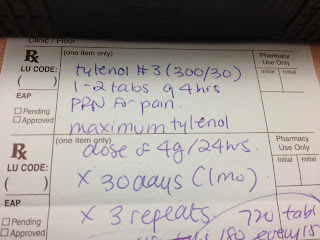 Clinic / Floor
Rx (one item only) Pharmacy Use Only
LU CODE: Initial Initial
( )
EAP
Pending
Approved
tylenol #3 (300/30).
1-2 tabs q 4hrs
PRN for pain.
maximum tylenol
Rx (one item only) Pharmacy Use Only
LU CODE: Initial Initial
( )
EAP
Pending
Approved
dose of 4g/24hrs.
x 30 days (1mo)
x 3 repeats. 720 tabs